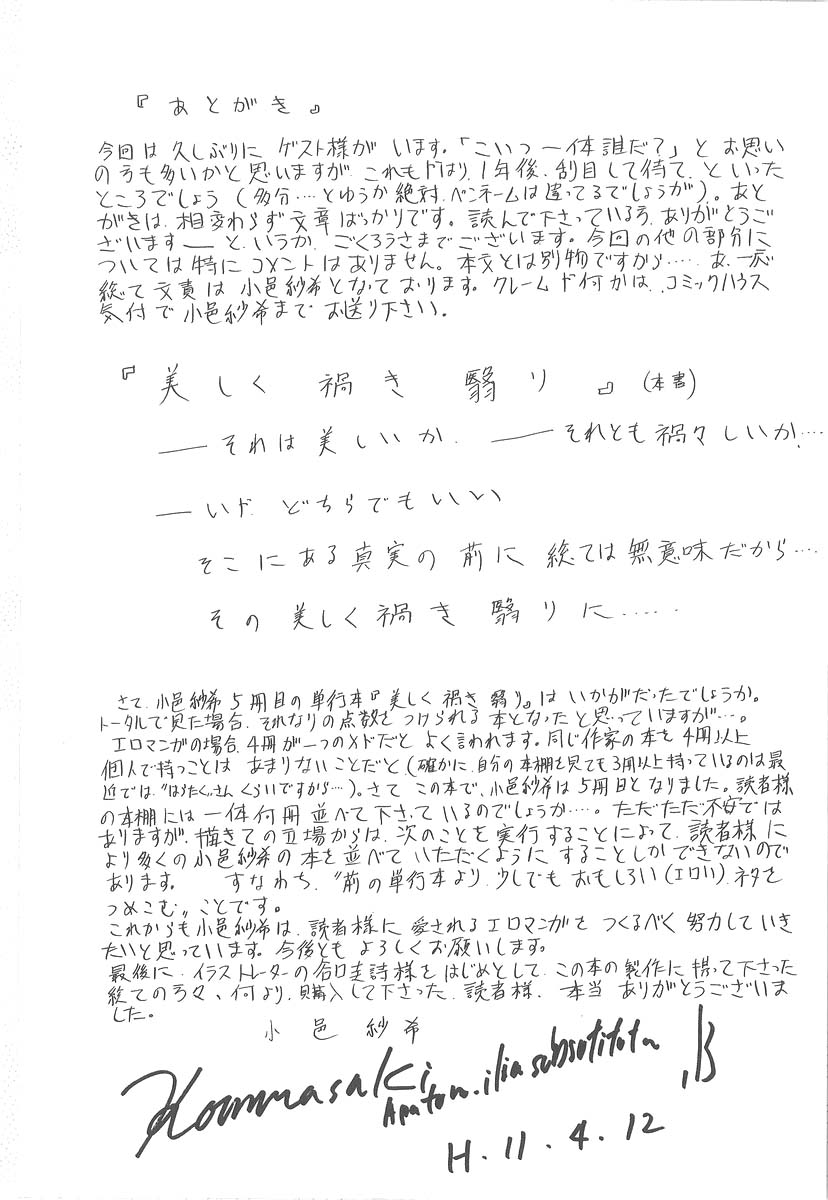 『あとがき』
今回は久しぶりに ゲスト様が います。「こいつ一体誰だ？」と お思い
の方も多いかと思いますが これもやはり、1年後、刮目して待て、といった
ところでしょう (多分‥‥とゆうか絶対、ペンネームは違ってるでしょうが)。あと
がきは、相変わらず文章ばっかりです。読んで下さっている方、ありがとうご
ざいます── と、いうか、ごくろうさまでございます。今回の他の部分に
ついては特にコメントはありません。本文とは別物ですから‥‥ あ、一応
総て文責は 小邑紗希となっております。クレームや何かは、コミックハウス
気付で 小邑紗希まで お送り下さい。
『美しく 禍き 翳り』(本書)
── それは 美しいか、 ── それとも 禍々しいか‥‥
── いや、どちらでもいい
そこにある真実の 前に 総ては 無意味だから‥‥
その 美しく 禍き 翳りに‥‥‥
さて、小邑紗希 5冊目の単行本『美しく 禍き 翳り』は いかがだったでしょうか。
トータルで見た場合、それなりの点数を つけられる 本となったと思っていますが‥‥。
エロマンガの場合、4冊が一つのメドだと よく言われます。同じ作家の本を 4冊以上
個人で持つことは あまりないことだと、(確かに、自分の本棚を見ても3冊以上持っているのは最
近では くらいですから‥‥)。さて この本で、小邑紗希は 5冊目となりました。読者様
の本棚には 一体何冊 並べて 下さっているのでしょうか‥‥。ただただ不安では
ありますが、描きての立場からは、次のことを 実行することによって、読者様に
より多くの小邑紗希の 本を 並べて いただくように することしか できないので
あります。 すなわち、〝前の単行本より、少しでも おもしろい(エロい)、ネタを
つめこむ〟ことです。
これからも 小邑紗希は、読者様に 愛されるエロマンガを つくるべく 努力していき
たいと思っています。今後とも よろしくお願いします。
最後に、イラストレーターの 様を はじめとして、この本の製作に 携って下さった
総ての方々、何より、購入して下さった、読者様、本当 ありがとうございま
した。
小邑紗希
Koumrasaki
H.11.4.12